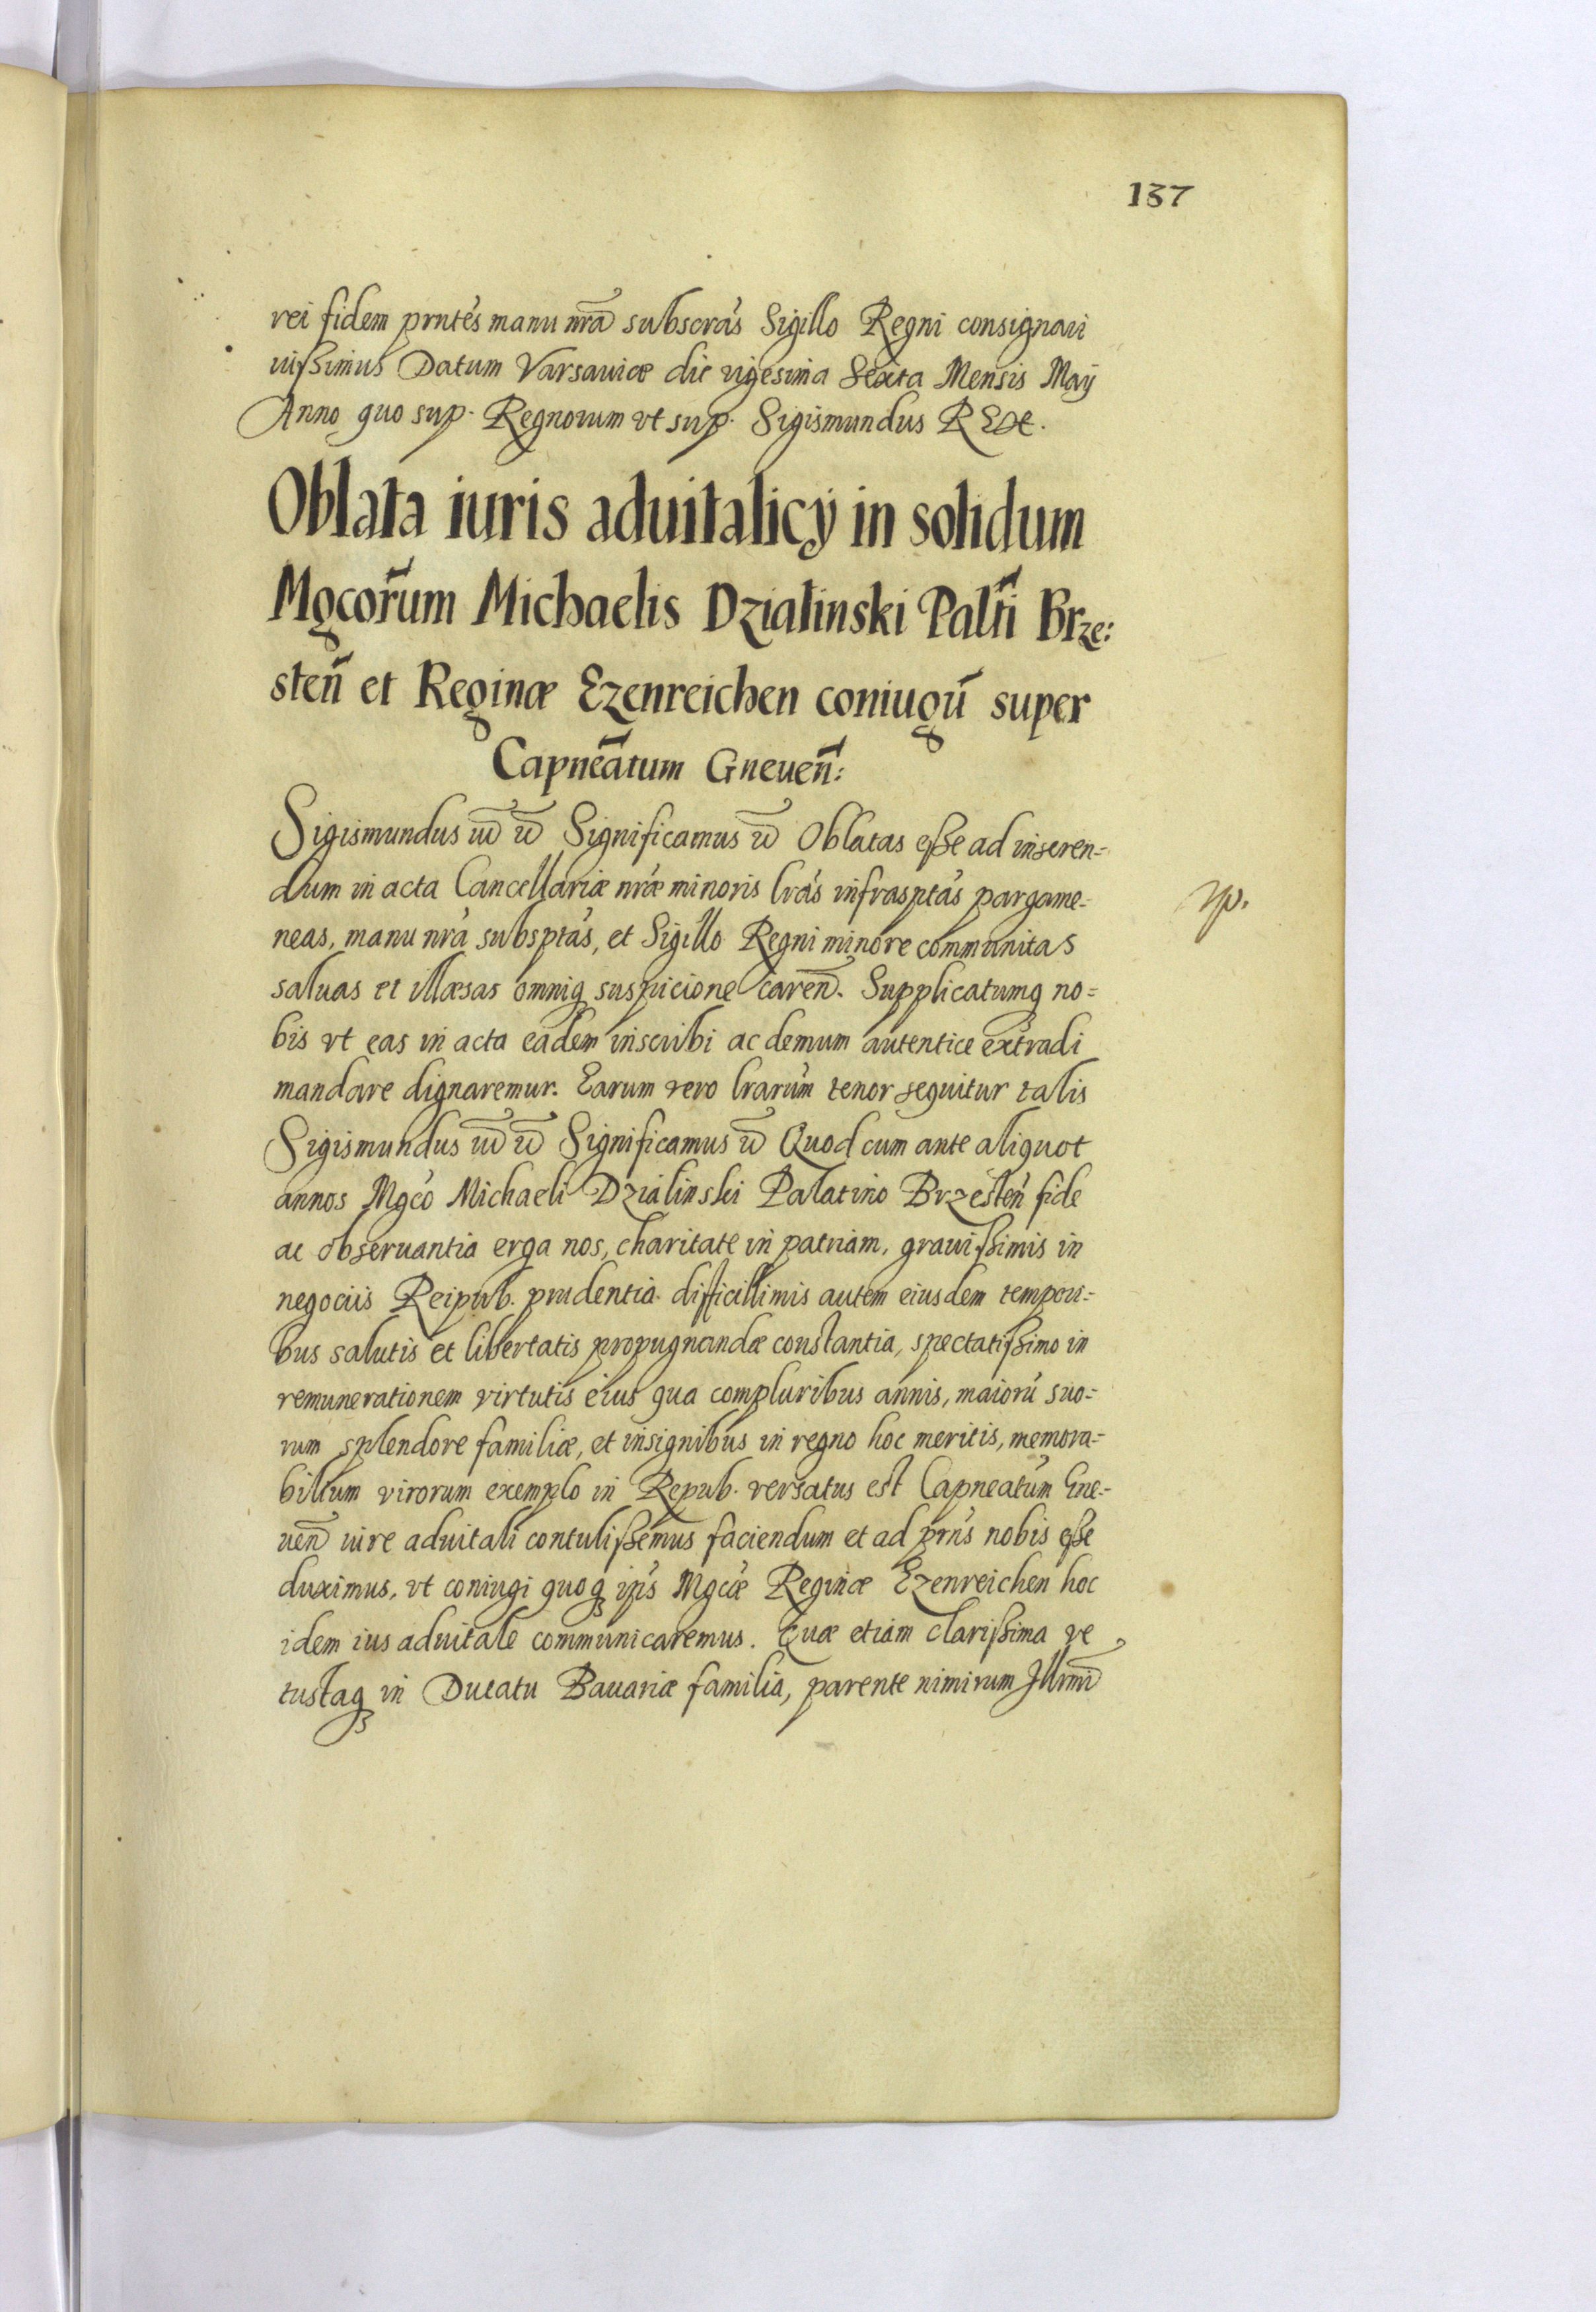 137
rei fidem prntes manu nrã subscras Sigillo Regni consignari
iussimus Datum Varsauiæ die vigesima Sexta Mensis Maÿ
Anno quo sup. Regnorum vt sup. Sigismundus REX.
Oblata iuris aduitalicÿ in solidum
Mgcor̃um Michaelis Dzialinski Paltñi Brze:
steñ et Reginæ Ezenreichen coniugũ super
Capneãtum Gneueñ:
Sigismundus Significamus Oblatas eße ad inseren=
dum in acta Cancellariæ nræ minoris lras infrasptas pargame=
neas, manu nra subsptas, et Sigillo Regni minore communitas
saluas et illæsas omniq suspicione careñ. Supplicatumq no=
bis vt eas in acta eadem inscribi ac demum autentice extradi
mandare dignaremur. Earum vero lrarum tenor sequitur talis
Sigismundus Significamus Quod cum ante aliquot
annos Mgco Michaeli Dzialinski Palatino Brzesteń fide
ac obseruantia erga nos, charitate in patriam, grauißimis in
negociis Reipub. prudentia difficillimis autem eiusdem tempori=
bus salutis et libertatis propugnandæ constantia, spectatißimo in
remunerationem virtutis eius qua compluribus annis, maiorú suo=
rum splendore familiæ, et insignibus in regno hoc meritis, memora=
bilium virorum exemplo in Repub. versatus est Capneatum Gne=
ueñ iure aduitali contulißemus faciendum et ad prns nobis eße
duximus, vt coniugi quoq ips Mgcæ Reginæ Ezenreichen hoc
idem ius aduitale communicaremus. Quæ etiam clarißima ve
tustaq in Ducatu Bauariæ familia, parente nimirum Illrmi